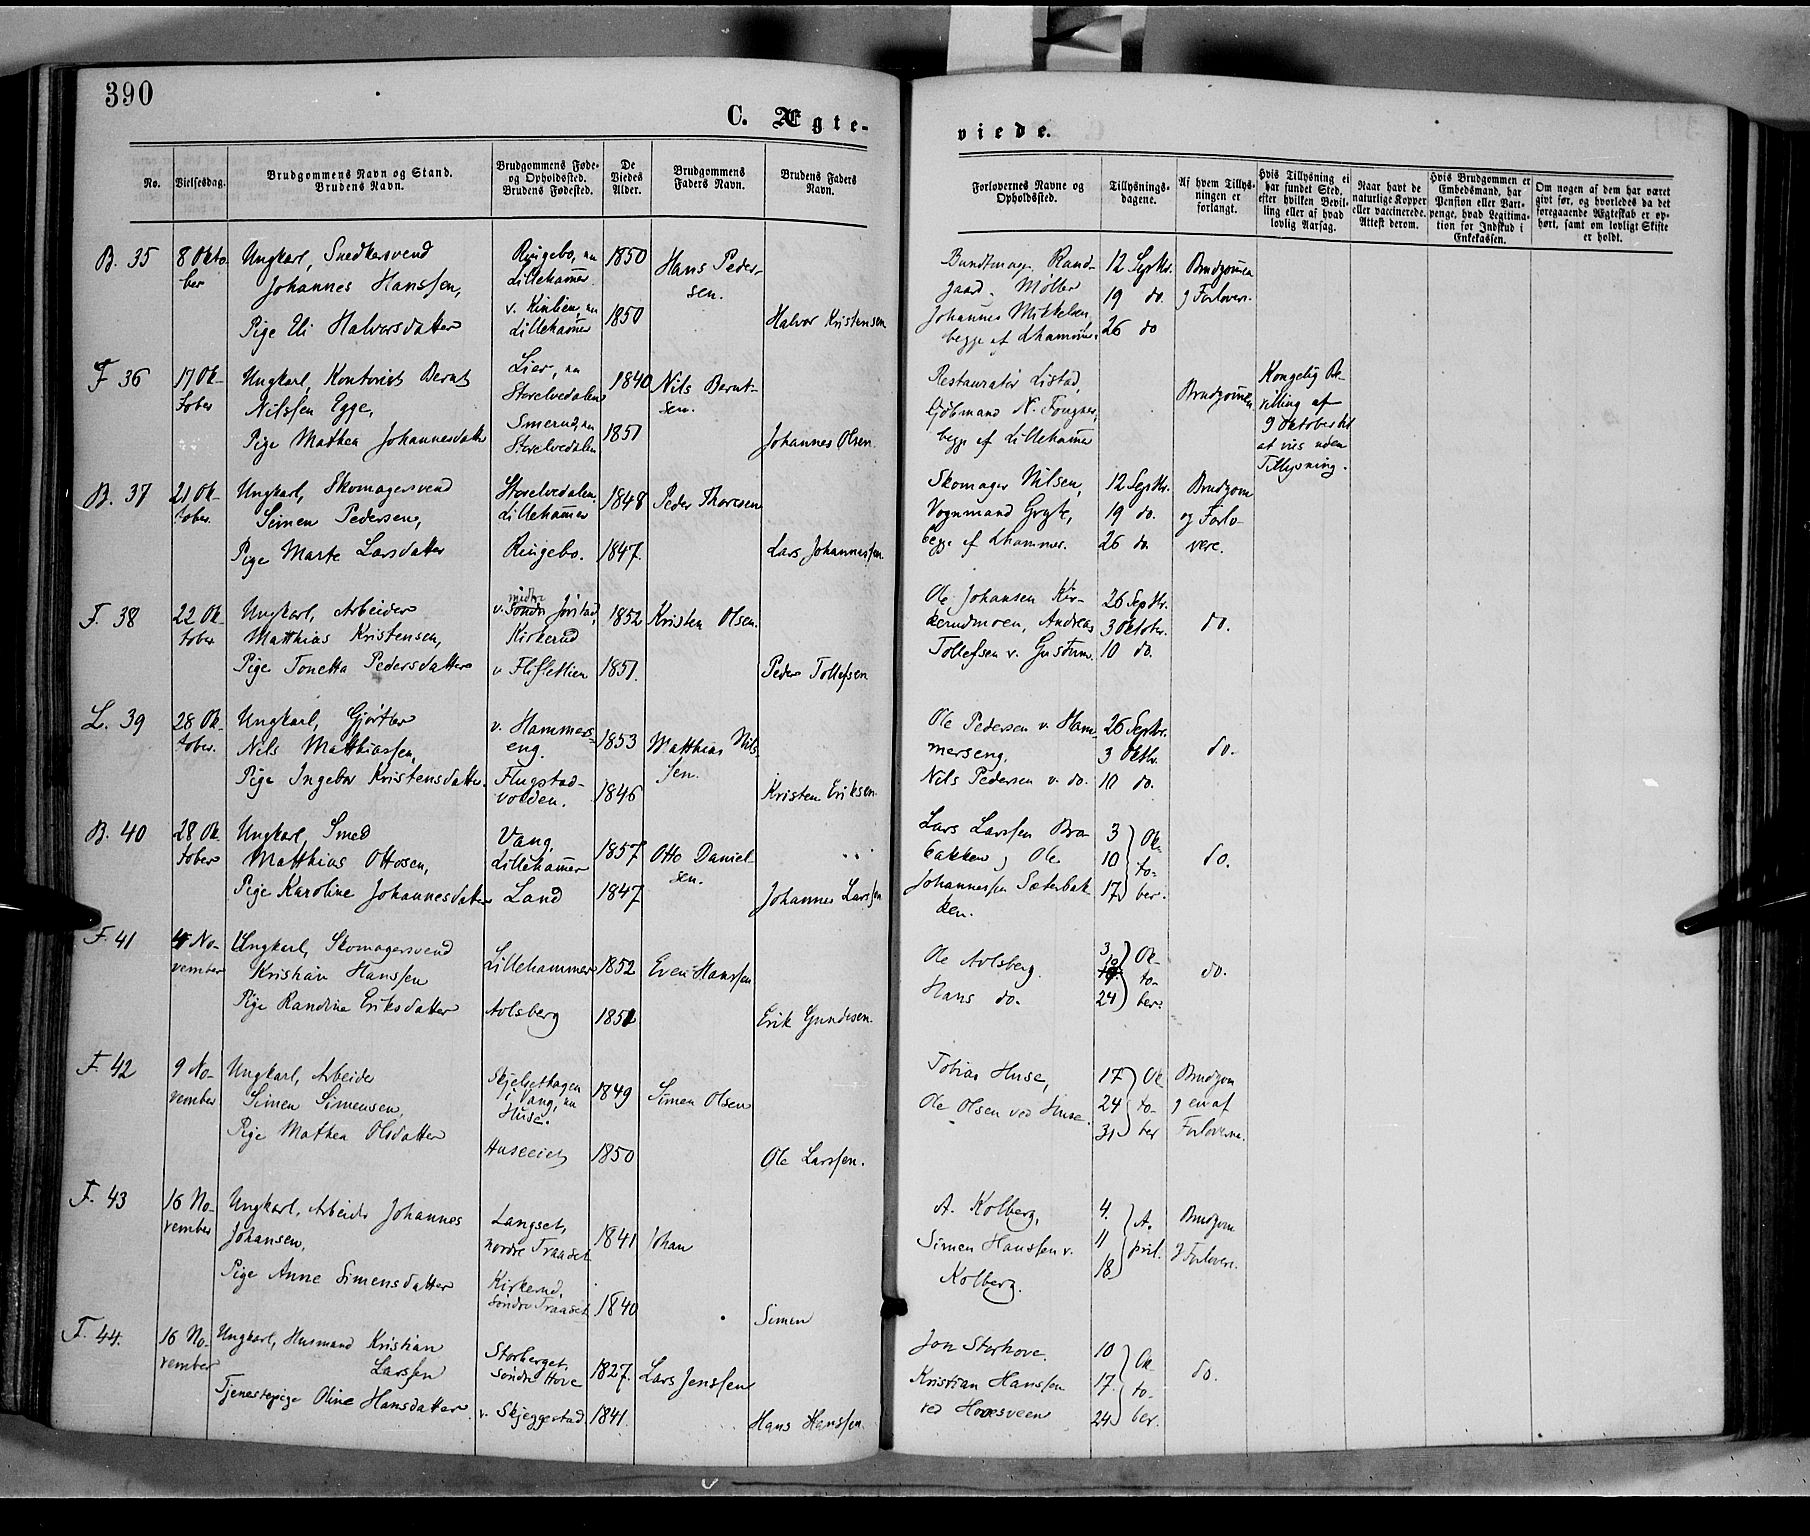 390
C. Ægte-
viede.
No.
Vielsesdag.
Brudgommens Navn og Stand.
Brudens Navn.
Brudgommens Føde-
og Opholdssted.
Brudens Fødested.
De
Viedes
Alder.
Brudgommens
Faders Navn.
Brudens Faders
Navn.
Forlovernes Navne og
Opholdssted.
Tillysnings-
dagene.
Af hvem Tillys-
ningen er
forlangt.
Hvis Tillysning ei
har fundet Sted,
efter hvilken Bevil-
ling eller af hvad
lovlig Aarsag.
Naar havt de
naturlige Kopper
eller vaccinerede.
Attest derom.
Hvis Brudgommen er
Embedsmand, har
Pension eller Vart-
penge, hvad Legitima-
tion for Indskud i
Enkekassen.
Om nogen af dem har været
givt før, og hvorledes da det
foregaaende Ægteskab er op-
hørt, samt om lovligt Skifte
er holdt.
B. 35
8 Okto-
ber
Ungkarl, Snedkersvend
Johannes Hanssen,
Pige Eli Halvorsdatter
Ringebo, nu
Lillehamer.
Lillehamer
1850
1850
Hans Peder-
sen.
Halvor Kristensen
Bundtmag. Rand-
gaard, Møller
Johannes Mikkelsen,
begge af Lhamer.
12 Septbr.
19 do.
26 do
Brudgomen
g Forlovere.
F 36
17 Ok-
tober
Ungkarl, Kontorist Bernt
Nilssen Egge,
Pige Mathea Johannesdatter
Lier, nu
Storelvedalen
Smerud, nu
Storelvedalen
1840
1851
Nils Bernt-
sen.
Johannes Olsen.
Restauratør Listad,
Kjøbmand N. Fougner,
begge af Lillehamer
Brudgomen
Kongelig Be-
villing af
9 Oktober til
at vies uden
Tillysning.
B. 37
21 Ok-
tober.
Ungkarl, Skomagersvend
Simen Pedersen,
Pige Marte Larsdatter
Storelvedalen.
Lillehamer
Ringebo.
1848
1847.
Peder Thoresen
Lars Johannessen.
Skomager Nilsen,
Vognmand Gryte,
begge af Lhammer.
12 Septbr.
19 do.
26 do.
Brudgom
og Forlo-
vere.
F. 38
22 Ok-
tober
Ungkarl, Arbeider
Matthias Kristensen,
Pige Tonetta Pedersdatter
midtre
v. Søndre Jørstad,
Kirkerud
v Flifletlien
1852
1851.
Kristen Olsen.
Peder Tollefsen
Ole Johansen Kir-
kerudmoen, Andreas
Tollefsen v. Gustum.
26 Septbr.
3 Oktober.
10 do.
do.
L. 39
28 Ok-
tober.
Ungkarl, Gjørtler
Nils Matthiassen,
Pige Ingebor Kristensdatter.
v. Hammers-
eng.
Flugstad-
volden.
1853
1846
Matthias Nils-
sen.
Kristen Eriksen.
Ole Pedersen v. Ham-
merseng.
Nils Pedersen v. do.
26 Septbr.
3 Oktbr.
10 do.
do.
B. 40
28 Ok-
tober
Ungkarl, Smed
Matthias Ottosen,
Pige Karoline Johannesdatter
Vang.
Lillehamer
Land
1857
1847
Otto Daniel-
sen.
Johannes Larssen
Lars Larssen Bra-
bakken, Ole
Johannessen Sæterbak-
ken.
3
10
17
Ok-
to-
ber.
do.
F. 41
4 No-
vember
Ungkarl, Skomagersvend
Kristian Hanssen
Pige Randine Eriksdatter
Lillehammer
Avlsberg
1852
1851
Even Hanssen
Erik Gundesen.
Ole Avlsberg.
Hans do.
3
24
Ok-
to-
ber.
do.
F. 42
9 No-
vember
Ungkarl, Arbeider
Simen Simensen,
Pige Mathea Olsdatter
Skjelsethagen
i Vang, nu
Huse.
Huseeiet
1849
1850
Simen Olsen
Ole Larssen.
Tobias Huse,
Ole Olsen ved Huse.
17
24
31
Ok
to-
ber
Brudgom
g en af
Forloverne.
F. 43
16 No-
vember
Ungkarl, Arbeider Johannes
Johansen,
Pige Anne Simensdatter
Langset,
nordre Traaset
Kirkerud,
søndre Traaset
1841
1840
Johan
Simen
A. Kolberg,
Simen Hanssen v.
Kolberg.
4.
11
18
A-
pril.
Brudgom
g Forlovere.
F. 44.
16 No-
vember
Ungkarl, Husmand Kristian
Larssen
Tjenestepige Oline Hansdatter
Storberget,
søndre Hove
v. Skjeggestad
1827.
1841.
Lars Jenssen
Hans Hanssen.
Jon Storhove.
Kristian Hanssen
ved Hovesveen
10
17.
24
Ok-
to-
ber.
do.